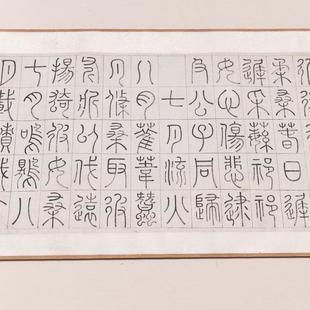 柔桑春日遲
遲采蘩祁祁
女心傷悲逮
及公子同歸
七月流火
八月萑葦蠶
月條桑取彼
斧斨以伐遠
揚猗彼女桑
七月鳴鵙八
月載績載